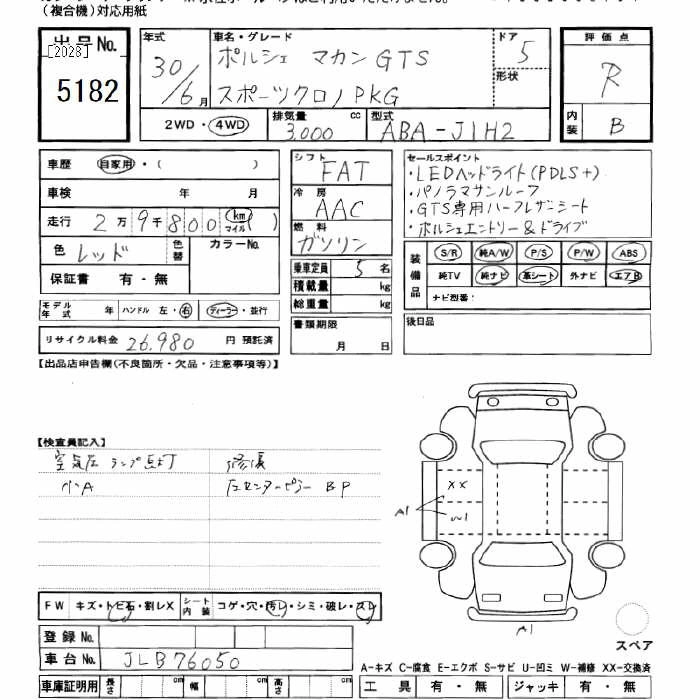 （複合機）対応用紙
出品No.
[2028]
5182
年式
30/6月
車名・グレード
ポルシェ マカン GTS
スポーツクロノPKG
ドア
5
形状
評価点
R
内装
B
2WD・4WD
排気量
3,000 cc
型式
ABA-J1H2
車歴 自家用・( )
車検 年 月
走行 2万9千800 km マイル ( )
色 レッド 色替 カラーNo.
保証書 有・無
モデル年式 年 ハンドル 左・右 ディーラー・並行
リサイクル料金 26,980 円 預託済
シフト
FAT
冷房
AAC
燃料
ガソリン
乗車定員 5 名
積載量 kg
総重量 kg
書類期限
月 日
セールスポイント
・LEDヘッドライト(PDLS+)
・パノラマサンルーフ
・GTS専用ハーフレザーシート
・ポルシェエントリー&ドライブ
装備品
S/R 純A/W P/S P/W ABS
純TV 純ナビ 革シート 外ナビ エアB
ナビ型番：
後日品
【出品店申告欄(不良箇所・欠品・注意事項等)】
【検査員記入】
空気圧 ランプ点灯
小A
修復
左センターピラー BP
XX
W1
A1
A1
FW キズ・トビ石・割レX シート内装 コゲ・穴・汚レ・シミ・破レ・スレ
登録No.
車台No. JLB76050
車庫証明用 長さ cm 幅 cm 高さ cm
スペア
A-キズ C-腐食 E-エクボ S-サビ U-凹ミ W-補修 XX-交換済
工具 有・無 ジャッキ 有・無